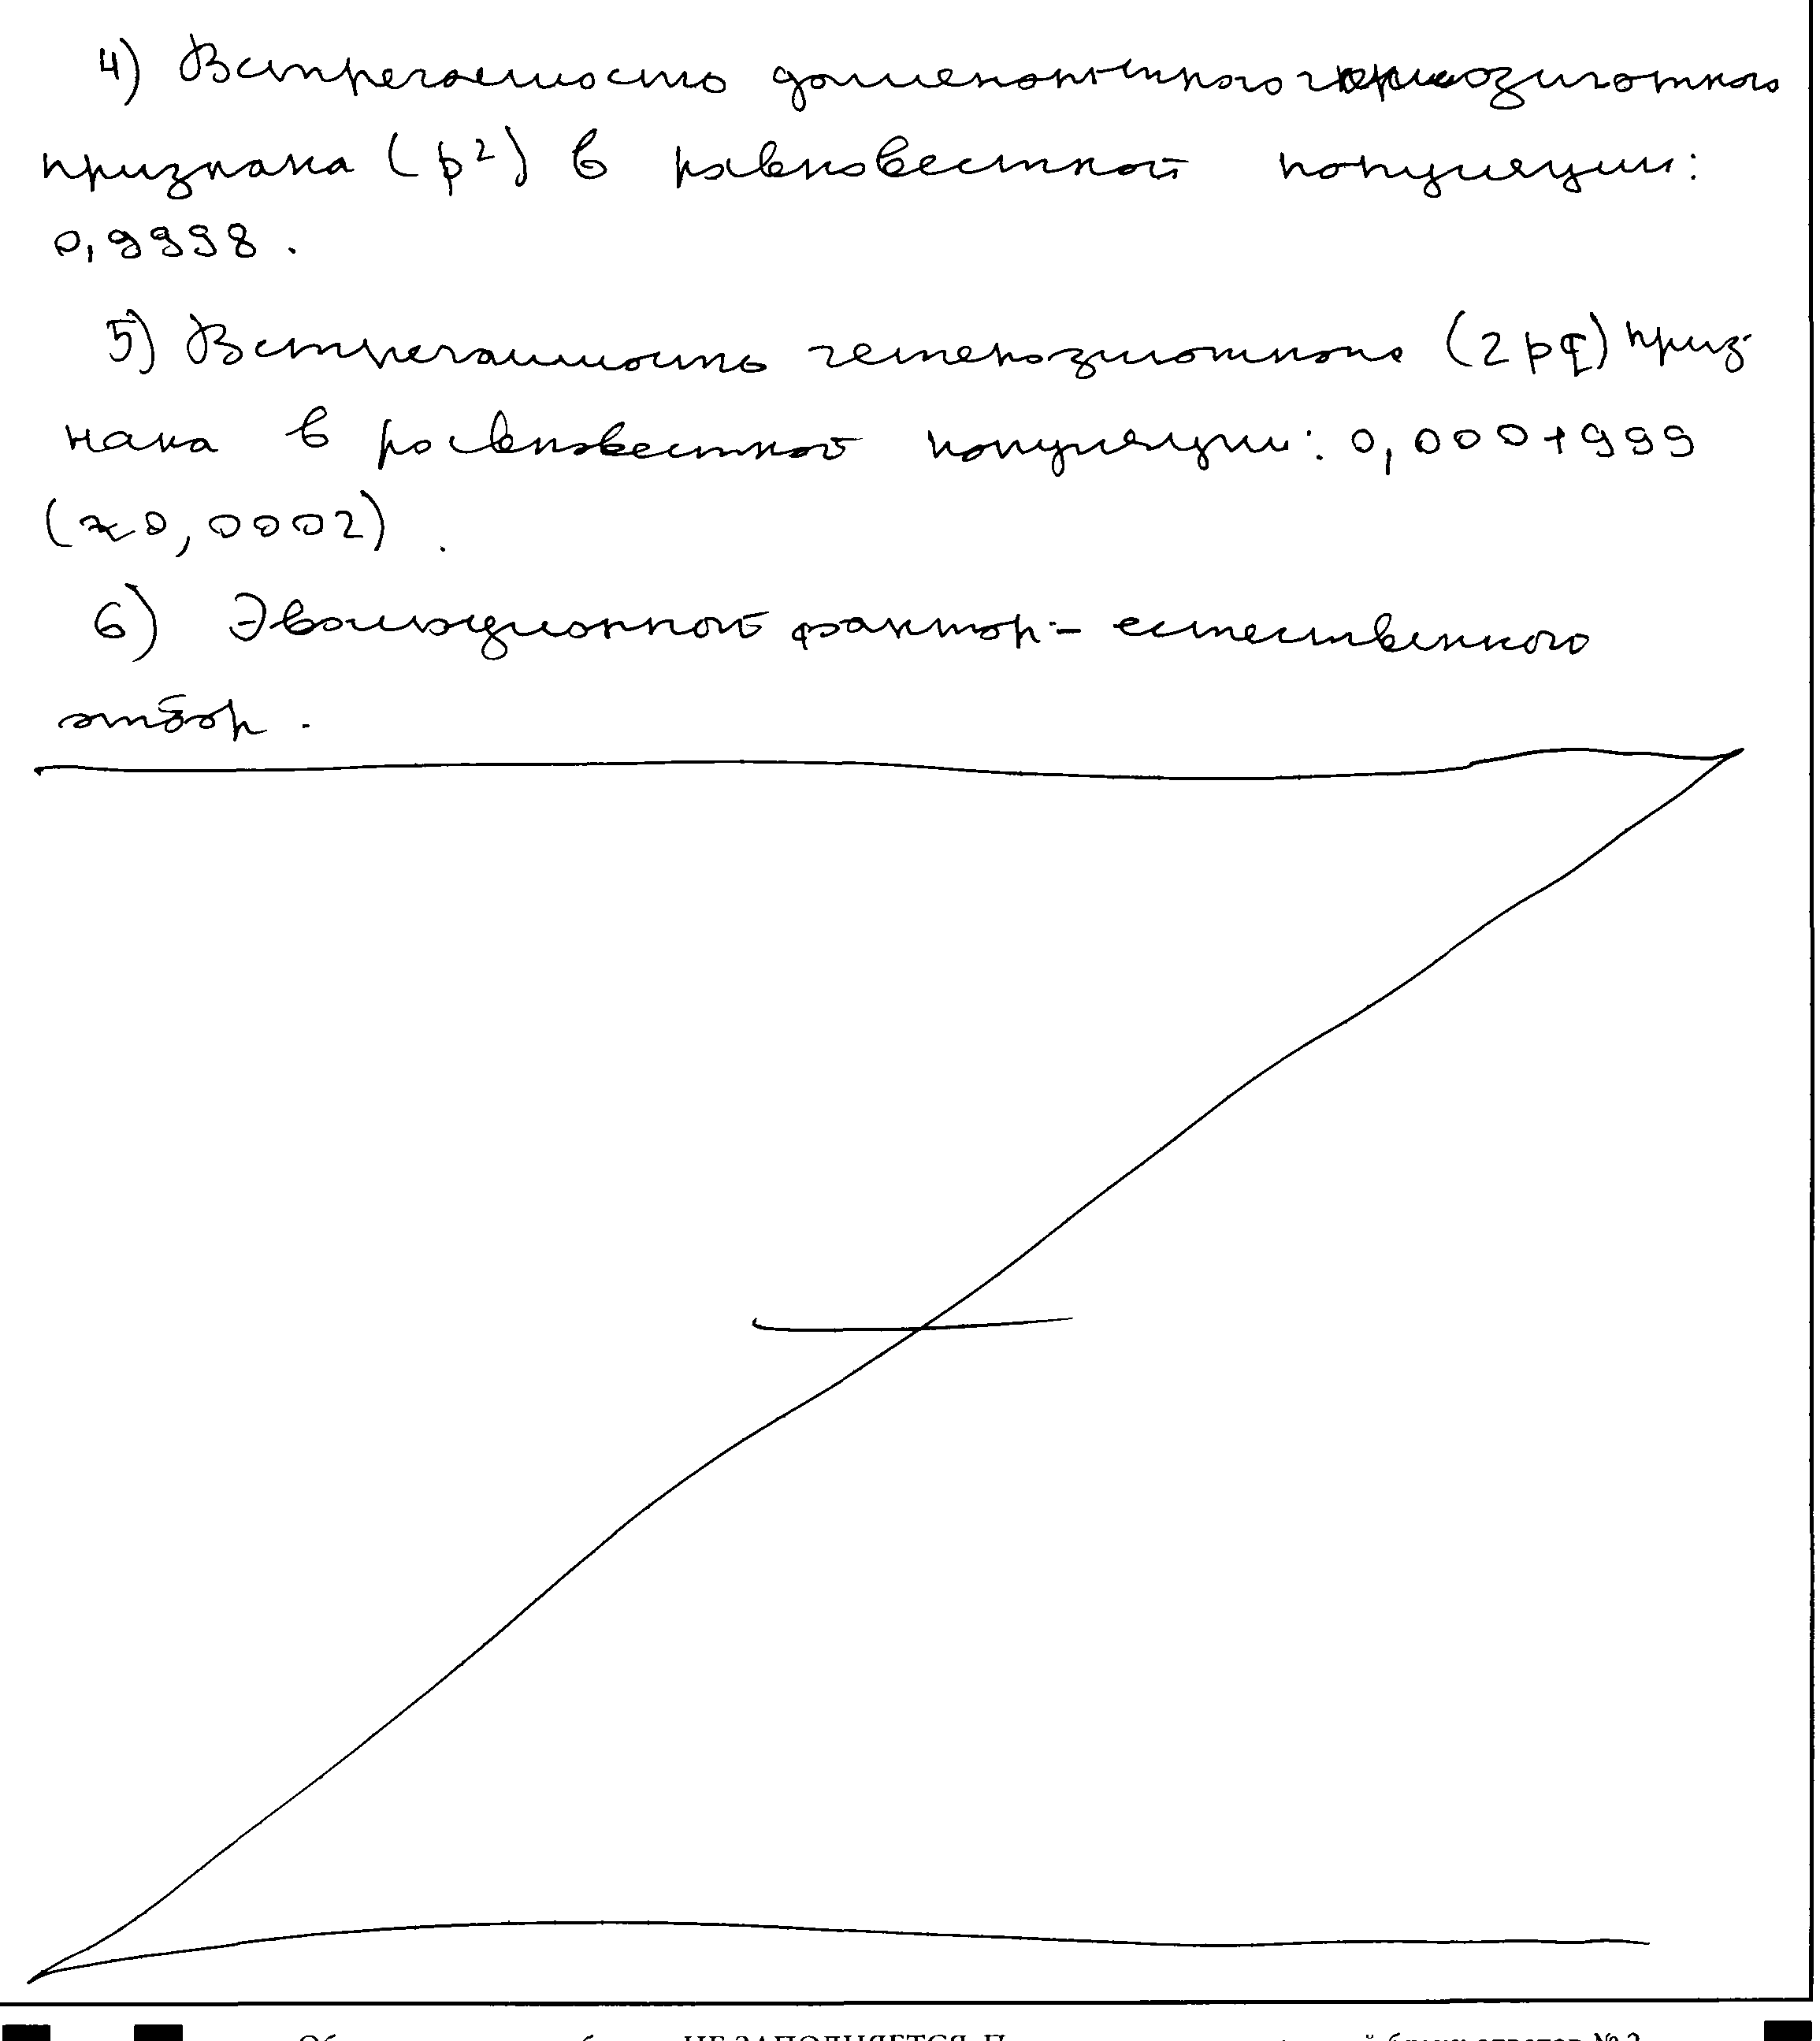 4) Встречаемость доменантного гомозиготного
признака (p²) в равновестной популяции:
0,9998.
5) Встречаимость гетерозиготного (2pq) приз-
нака в равновестной популяции: 0,0001999
(≈0,0002).
6) Эволюционной фактор - естественного
отбор.
НЕ ЗАПОЛНЯЕТСЯ. П